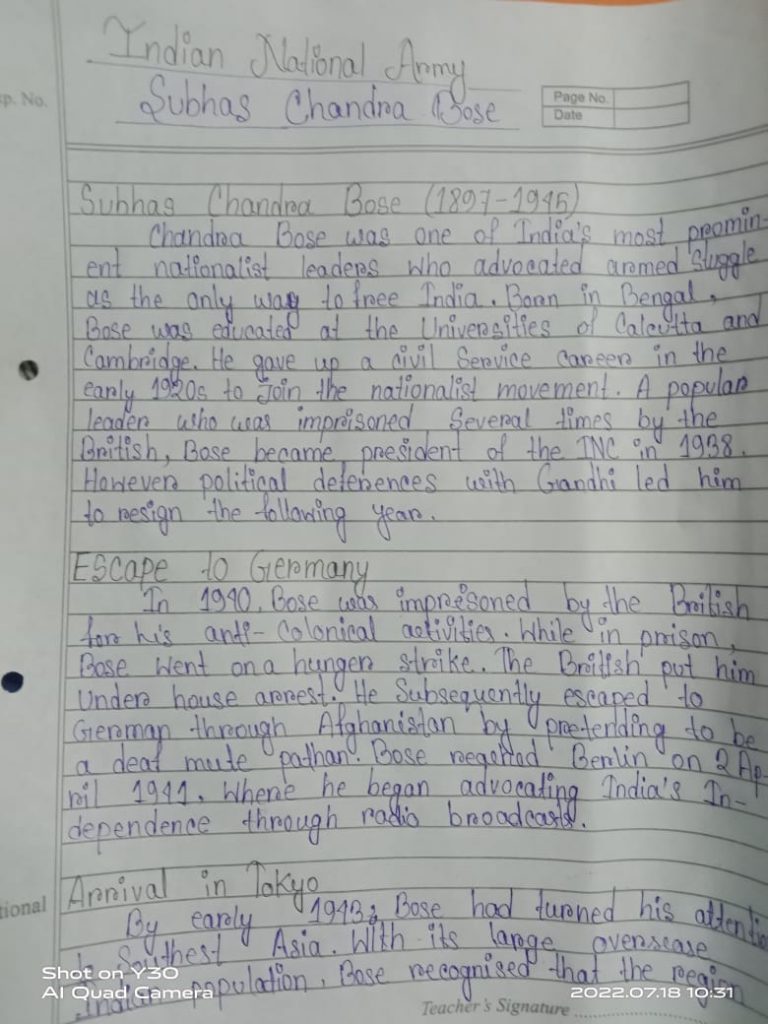 Indian National Army
Subhas Chandra Bose
p. No.
Page No.
Date
Subhas Chandra Bose (1897-1945)
Chandra Bose was one of India's most promin-
ent nationalist leaders who advocated armed Sluggle
as the only way to free India. Born in Bengal,
Bose was educated at the Universities of Calcutta and
Cambridge. He gave up a civil Service career in the
early 1920s to join the nationalist movement. A popular
leader who was imprisoned Several times by the
British, Bose became president of the INC in 1938.
However political deferences with Gandhi led him
to resign the following year.
Escape to Germany
In 1940, Bose was imprisoned by the British
for his anti-Colonical activities. While in prison,
Bose went on a hunger strike. The British put him
Under house arrest. He Subsequently escaped to
German through Afghanistan by pretending to be
a deaf mute pathan. Bose Berlin on 2 Ap-
ril 1941, Where he began advocating India's In-
dependence through radio broadcasts.
Arrival in Tokyo
By early 1943, Bose had turned his attenti
Southest Asia. With its large overscase
Indian population, Bose recognised that the region
tional
Teacher's Signature
Shot on Y30
AI Quad Camera
2022.07.18 10:31